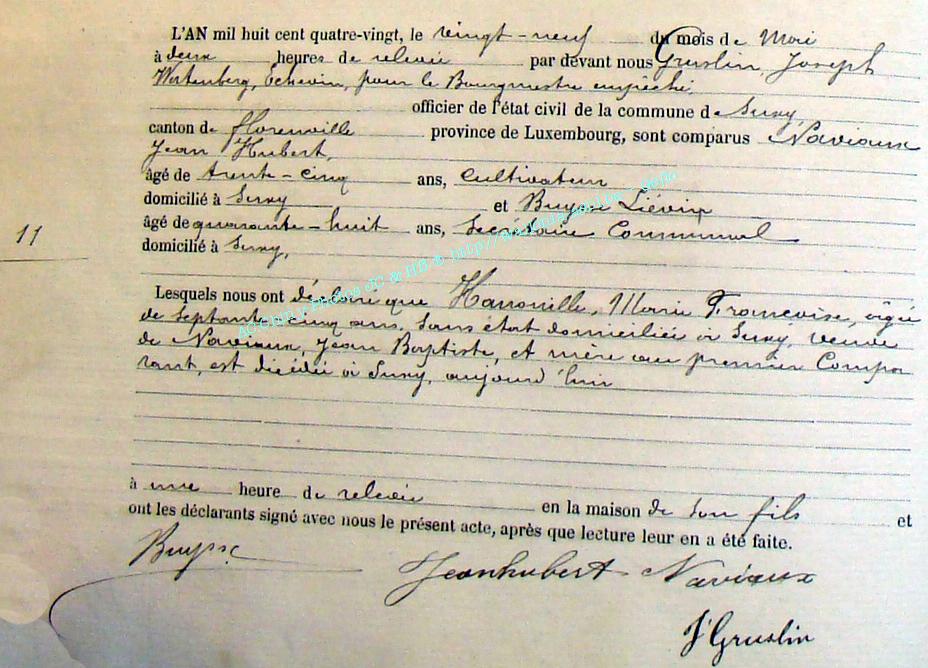 L'AN mil huit cent quatre-vingt, le vingt-neuf du mois de Mai
à deux heures de relevée par devant nous Gruslin, Joseph
Échevin, pour le Bourgmestre empêché,
officier de l'état civil de la commune de Suxy
canton de florenville province de Luxembourg, sont comparus Naviaux
Jean Hubert,
âgé de trente-cinq ans, Cultivateur
domicilié à Suxy et Buysse Liévin
âgé de quarante-huit ans, Secrétaire Communal
11
domicilié à Suxy,
Lesquels nous ont déclaré que Hanonille, Marie Françoise, âgée
de Septante-cinq ans, Sans état domiciliée à Suxy, veuve
de Naviaux, Jean Baptiste, et mère au premier Compa
rant, est dicédée à Suxy, aujourd'hui
à une heure de relevée en la maison de son fils et
ont les déclarants signé avec nous le présent acte, après que lecture leur en a été faite.
Buysse
Jeanhubert Naviaux
J Gruslin